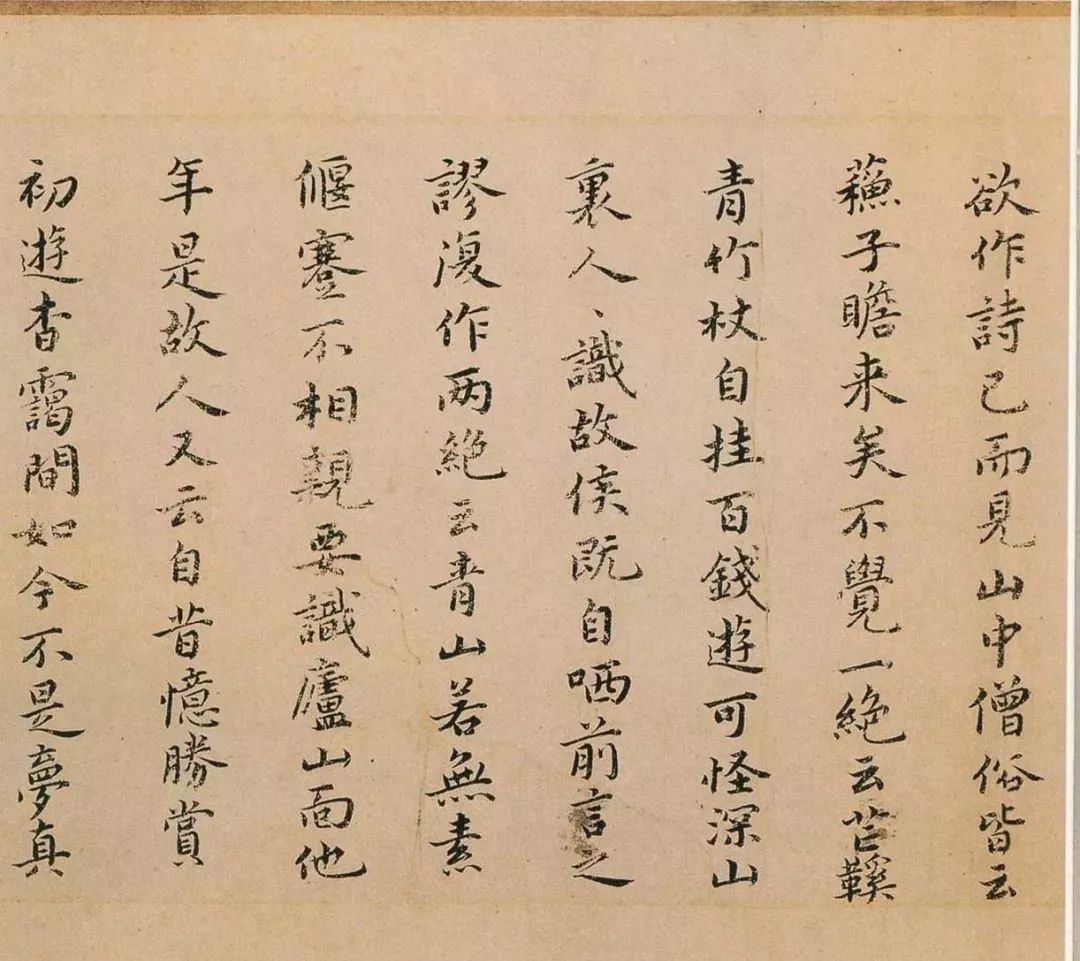 欲作詩已而見山中僧俗皆云
蘓子瞻来矣不覺一絶云芒鞵
青竹杖自挂百錢遊可怪深山
裏人〻識故侯既自哂前言之
謬復作两絶云青山若無素
偃蹇不相親要識廬山面他
年是故人又云自昔憶勝賞
初遊杳靄間如今不是夢真